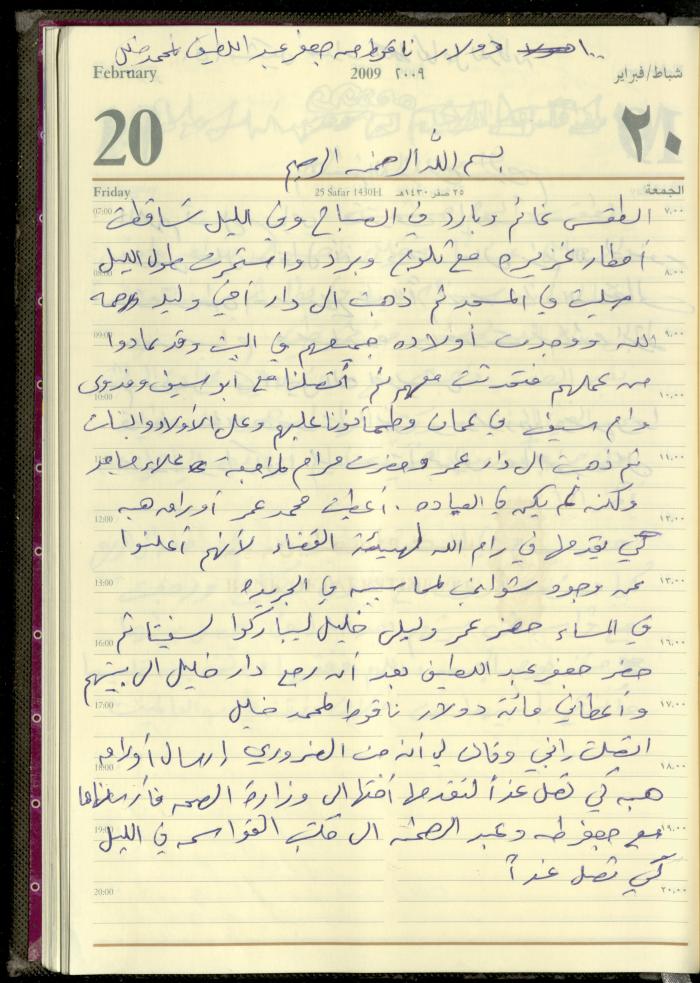 ١٠٠ دولار ناقوط من جعفر عبد اللطيف لمحمد خليل
February 2009 ٢٠٠٩ شباط/فبراير
20 ٢٠
بسم الله الرحمن الرحيم
Friday 25 Safar 1430H ٢٥ صفر ١٤٣٠هـ الجمعة
07:00 الطقس غائم وبارد في الصباح وفي الليل تساقطت ٧:٠٠
08:00 أمطار غزيره مع ثلوج وبرد واستمرت طول الليل ٨:٠٠
صليت في المسجد ثم ذهبت الى دار أخي وليد رحمه
09:00 الله ووجدت أولاده جميعهم في البيت وقد عادوا ٩:٠٠
10:00 من عملهم فتحدثت معهم ثم أتصلنا مع ابو سيف وفدوى ١٠:٠٠
وام سيف في عمان وطمأنونا عليهم وعلى الأولاد والبنات
11:00 ثم ذهبت الى دار عمر وحضرت مرام لمراجعة علاء ١١:٠٠
12:00 ولكنه لم يكن في العياده . أعطيت محمد عمر أوراق هبه ١٢:٠٠
كي يقدمها في رام الله لهيئة القضاء لأنهم أعلنوا
13:00 عن وجود شواغر لمحاسبين في الجريده ١٣:٠٠
16:00 في المساء حضر عمر وليلى خليل ليباركوا لسفيتا ثم ١٦:٠٠
حضر جعفر عبد اللطيف بعد أن رجع دار خليل الى بيتهم
17:00 وأعطاني مائة دولار ناقوط لمحمد خليل ١٧:٠٠
18:00 اتصلت راني وقالت لي أنه من الضروري إرسال أوراق ١٨:٠٠
هبه كي تصل غداً لتقدمها أختها الى وزارة الصحه فأرسلناها
19:00 مع جعفر طه وعبد الرحمن الى مكتب القواسمه في الليل ١٩:٠٠
كي تصل غداً
20:00 ٢٠:٠٠